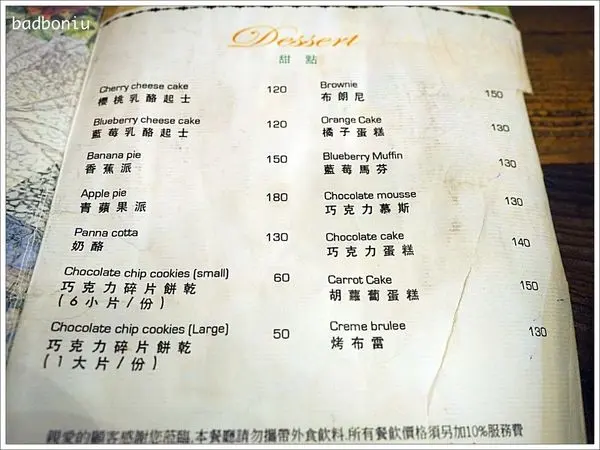 badboniu
Dessert
甜點
Cherry cheese cake 120
櫻桃乳酪起士
Blueberry cheese cake 120
藍莓乳酪起士
Banana pie 150
香蕉派
Apple pie 180
青蘋果派
Panna cotta 130
奶酪
Chocolate chip cookies (small) 60
巧克力碎片餅乾
(6小片/份)
Chocolate chip cookies (Large) 50
巧克力碎片餅乾
(1大片/份)
Brownie 150
布朗尼
Orange Cake 130
橘子蛋糕
Blueberry Muffin 130
藍莓馬芬
Chocolate mousse 130
巧克力慕斯
Chocolate cake 140
巧克力蛋糕
Carrot Cake 150
胡蘿蔔蛋糕
Creme brulee 130
烤布雷
親愛的顧客感謝您蒞臨,本餐廳請勿攜帶外食飲料,所有餐飲價格須另加10%服務費